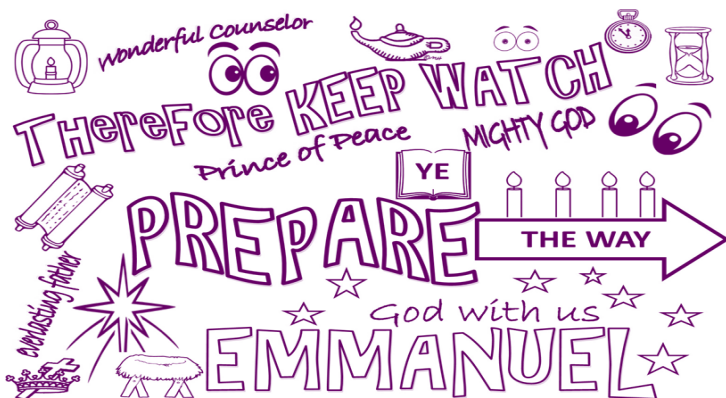 Wonderful Counselor
THereFore KEEP WATCH
Prince of Peace
MIGHTY GOD
YE
PREPARE
THE WAY
everlasting father
God with us
EMMANUEL